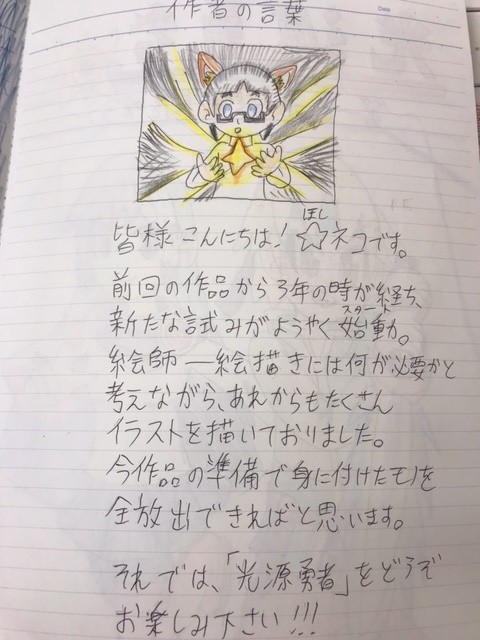 作者の言葉
Date
皆様こんにちは!☆ネコです。
ほし
前回の作品から3年の時が経ち、
新たな試みがようやく始動。
スタート
絵師―絵描きには何が必要かと
考えながら、あれからもたくさん
イラストを描いておりました。
今作品の準備で身に付けたモノを
全放出できればと思います。
それでは、「光源勇者」をどうぞ
お楽しみ下さい!!!